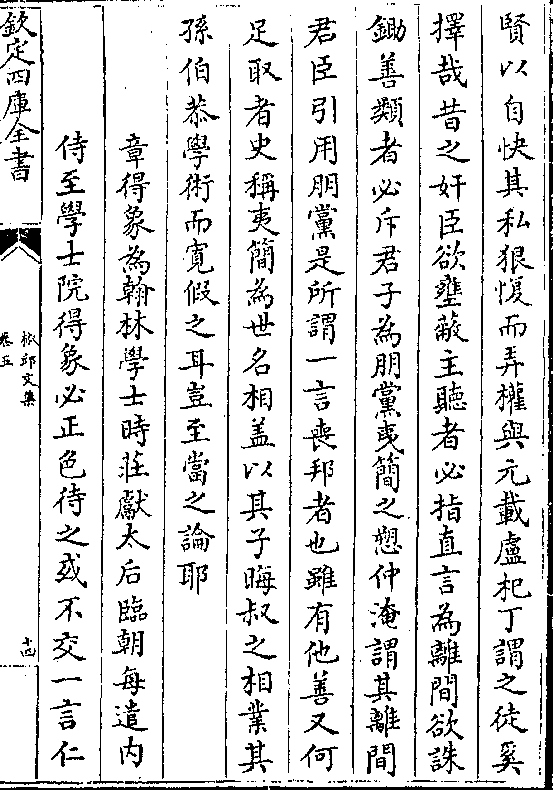 賢以自快其私狠愎而弄權與元載盧杞丁謂之徒奚
擇哉昔之奸臣欲壅蔽主聽者必指直言為離間欲誅
鋤善類者必斥君子為朋黨夷簡之愬仲淹謂其離間
君臣引用朋黨是所謂一言喪邦者也雖有他善又何
足取者史稱夷簡為世名相盖以其子晦叔之相業其
孫伯恭學術而寛假之耳豈至當之論耶
章得象為翰林學士時莊獻太后臨朝每遣内
侍至學士院得象必正色待之或不交一言仁
欽定四庫全書
椒邱文集
卷五
十四